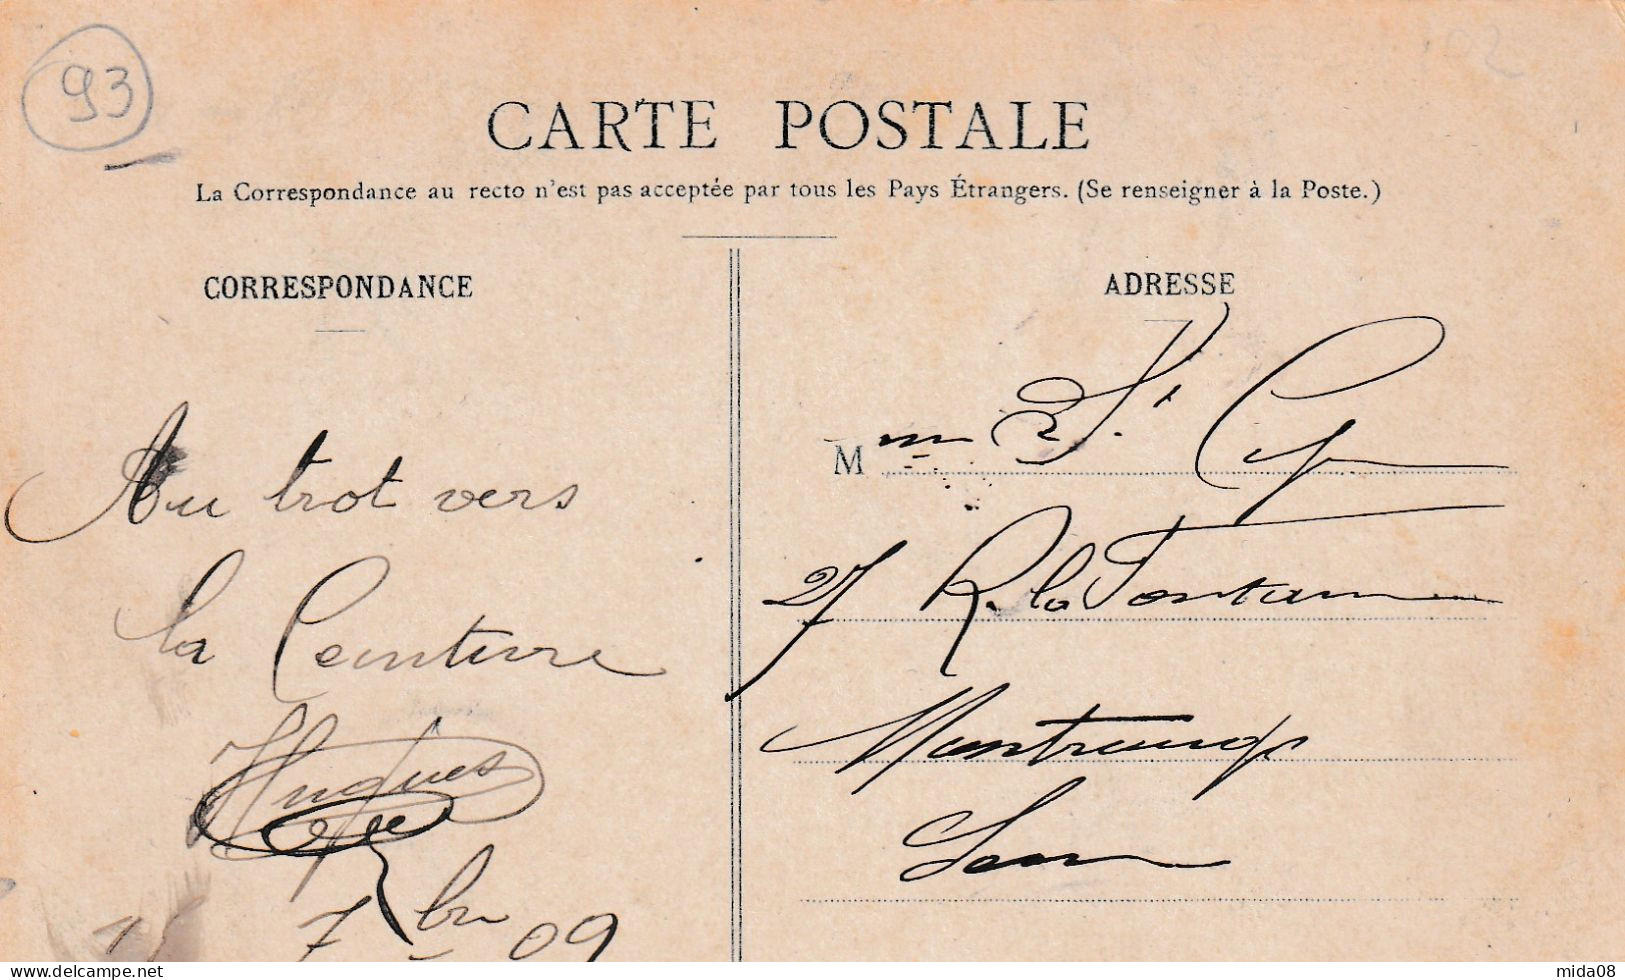 93
CARTE POSTALE
La Correspondance au recto n'est pas acceptée par tous les Pays Étrangers. (Se renseigner à la Poste.)
CORRESPONDANCE
Au trot vers
la Ceinture
Hugues
7bre 09
ADRESSE
Mme St Cyr
27 R. la Fontaine
Montrouge
Seine
delcampe.net
mida08